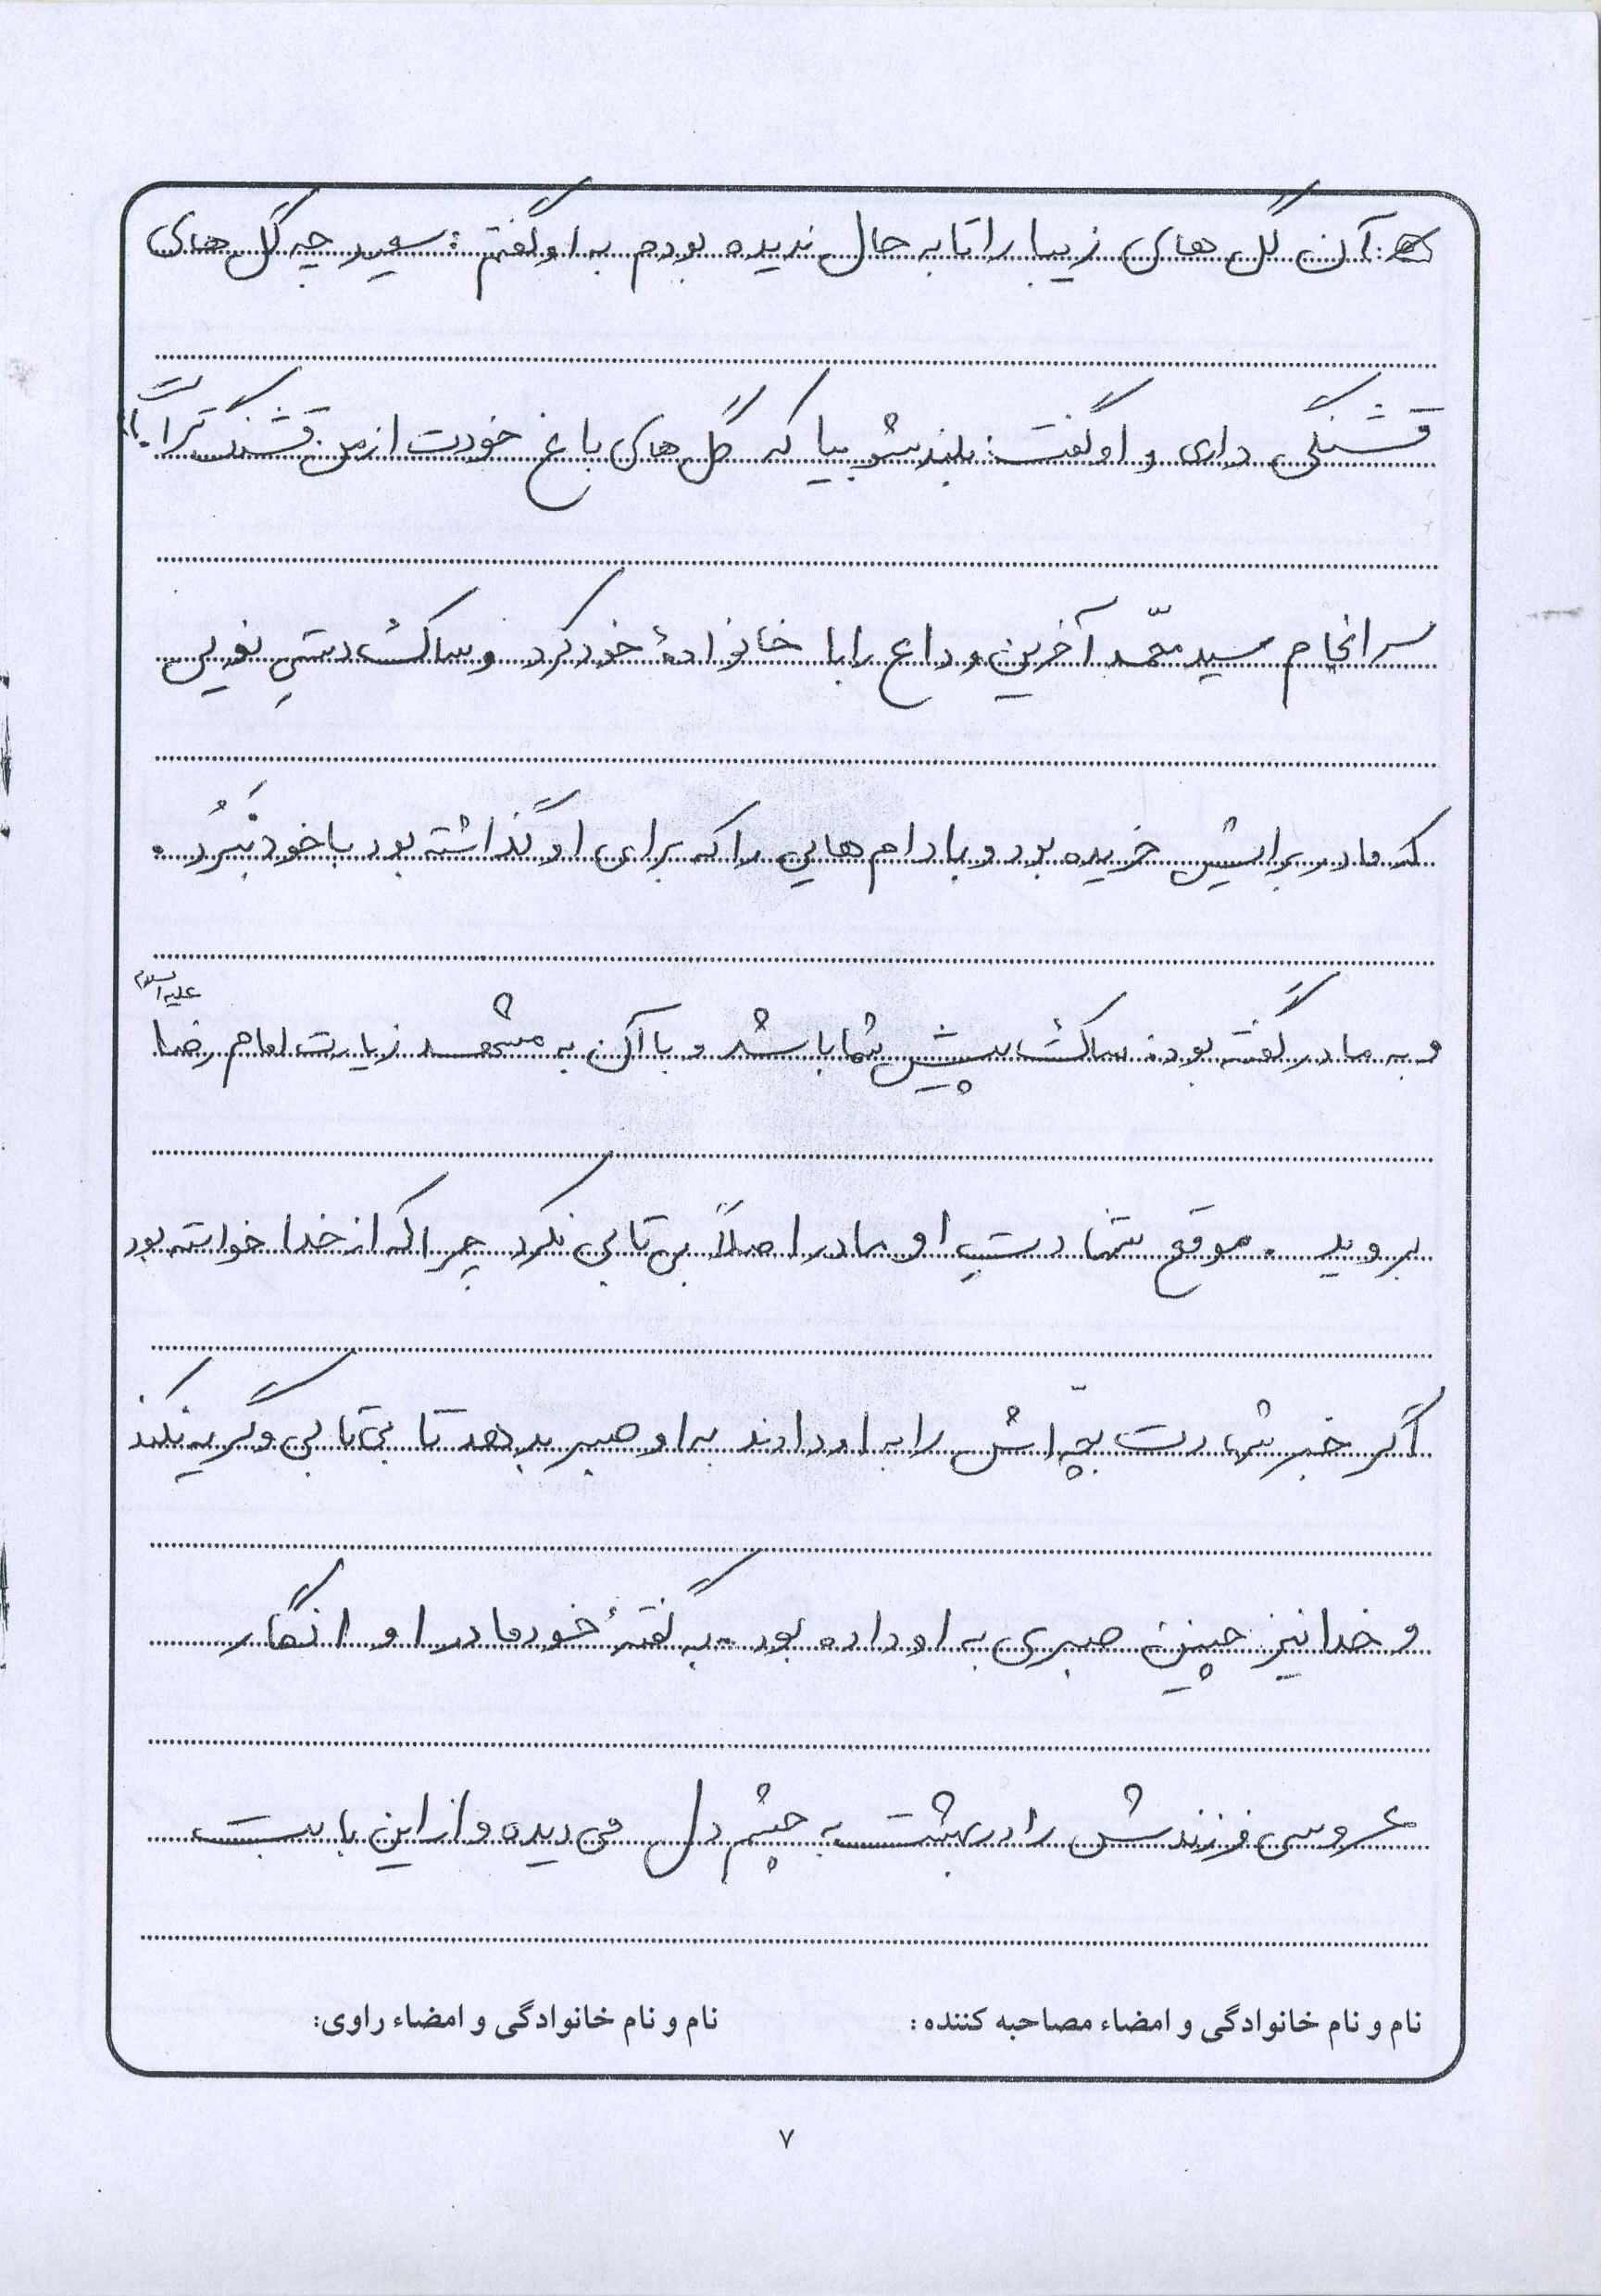 آن گل های زیبا را تا به حال ندیده بودم به او گفتم : سعید چه گل های
قشنگی داری و او گفت : بلند شو بیا که گل های باغ خودت از من قشنگ تراً ..."
سرانجام سید محمّد آخرین وداع را با خانوادهٔ خود کرد و ساک دستیِ نویی
که مادر برایش خریده بود و بادام هایی را که برای او گذاشته بود با خود نَبُرد .
و به مادر گفته بود : ساک پیش شما باشد و با آن به مشهد زیارت امام رضا علیه السلام
بروید . موقع شهادتِ او مادر اصلاً بی تابی نکرد چرا که از خدا خواسته بود
اگر خبر شهادت بچّه اش را به او دادند به او صبر بدهد تا بی تابی و گریه نکند
و خدا نیز چنین صبری به او داده بود . به گفتهٔ خود مادر او انگار
عروسی فرزندش را در بهشت به چشم دل می دیده و از این بابت
نام و نام خانوادگی و امضاء مصاحبه کننده : نام و نام خانوادگی و امضاء راوی:
۷